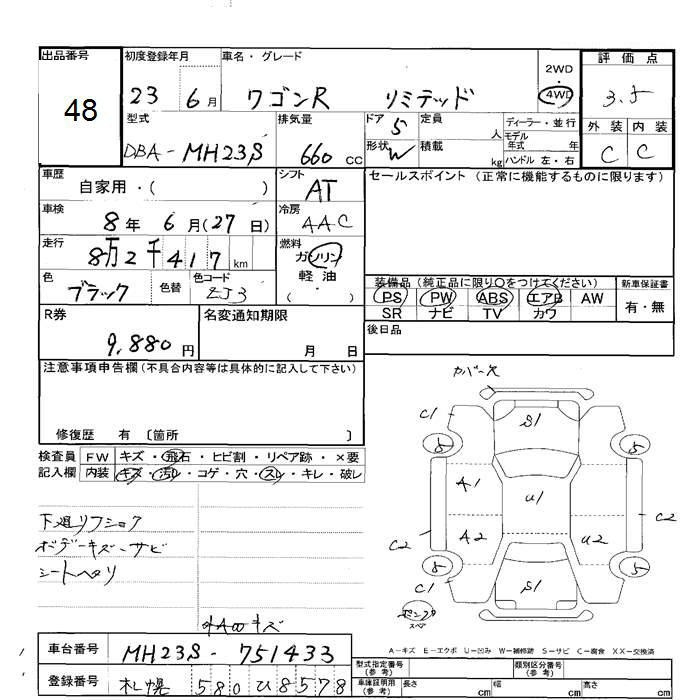 出品番号 初度登録年月 車名・グレード 評価点
48
23 6月 ワゴンR リミテッド 2WD・4WD 3.5
型式 排気量 ドア 定員 ディーラー・並行 外装 内装
DBA-MH23S 660cc 5 人 モデル年式 年 C C
形状 W 積載 kg ハンドル 左・右
車歴 シフト セールスポイント(正常に機能するものに限ります)
自家用・( ) AT
車検 冷房
8年 6月(27日) AAC
走行 燃料
8万2千417km ガソリン
軽油
( )
色 色替 色コード 装備品(純正品に限り○をつけてください) 新車保証書
ブラック ZJ3 PS PW ABS エアB AW 有・無
SR ナビ TV カワ
R券 名変通知期限 後日品
9,880円 月 日
注意事項申告欄(不具合内容等は具体的に記入して下さい)
修復歴 有 〔箇所 〕
検査員記入欄 FW キズ・飛石・ヒビ割・リペア跡・×要
内装 キズ・汚れ・コゲ・穴・スレ・キレ・破レ
下廻りフショク
ボデーキズ・サビ
シートヘタリ
カバー欠
C1 S1
5 5
A1 U1
C2 A2 U2 C2
5 5
C1 S1
センプク
スペア
A-キズ E-エクボ U-凹み W-補修跡 S-サビ C-腐食 XX-交換済
車台番号 MH23S-751433
登録番号 札幌 580 ひ 8578
型式指定番号(参考) 類別区分番号(参考)
車庫証明用(参考) 長さ cm 幅 cm 高さ cm